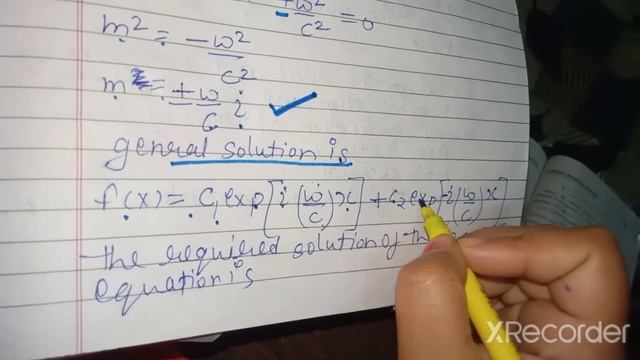 +ω²/c² = 0
m² = -ω²/c²
m = ±ω/c i
general solution is
f(x) = c₁ exp[i(ω/c)x] + c₂ exp[-i(ω/c)x]
the required solution of the
equation is
XRecorder